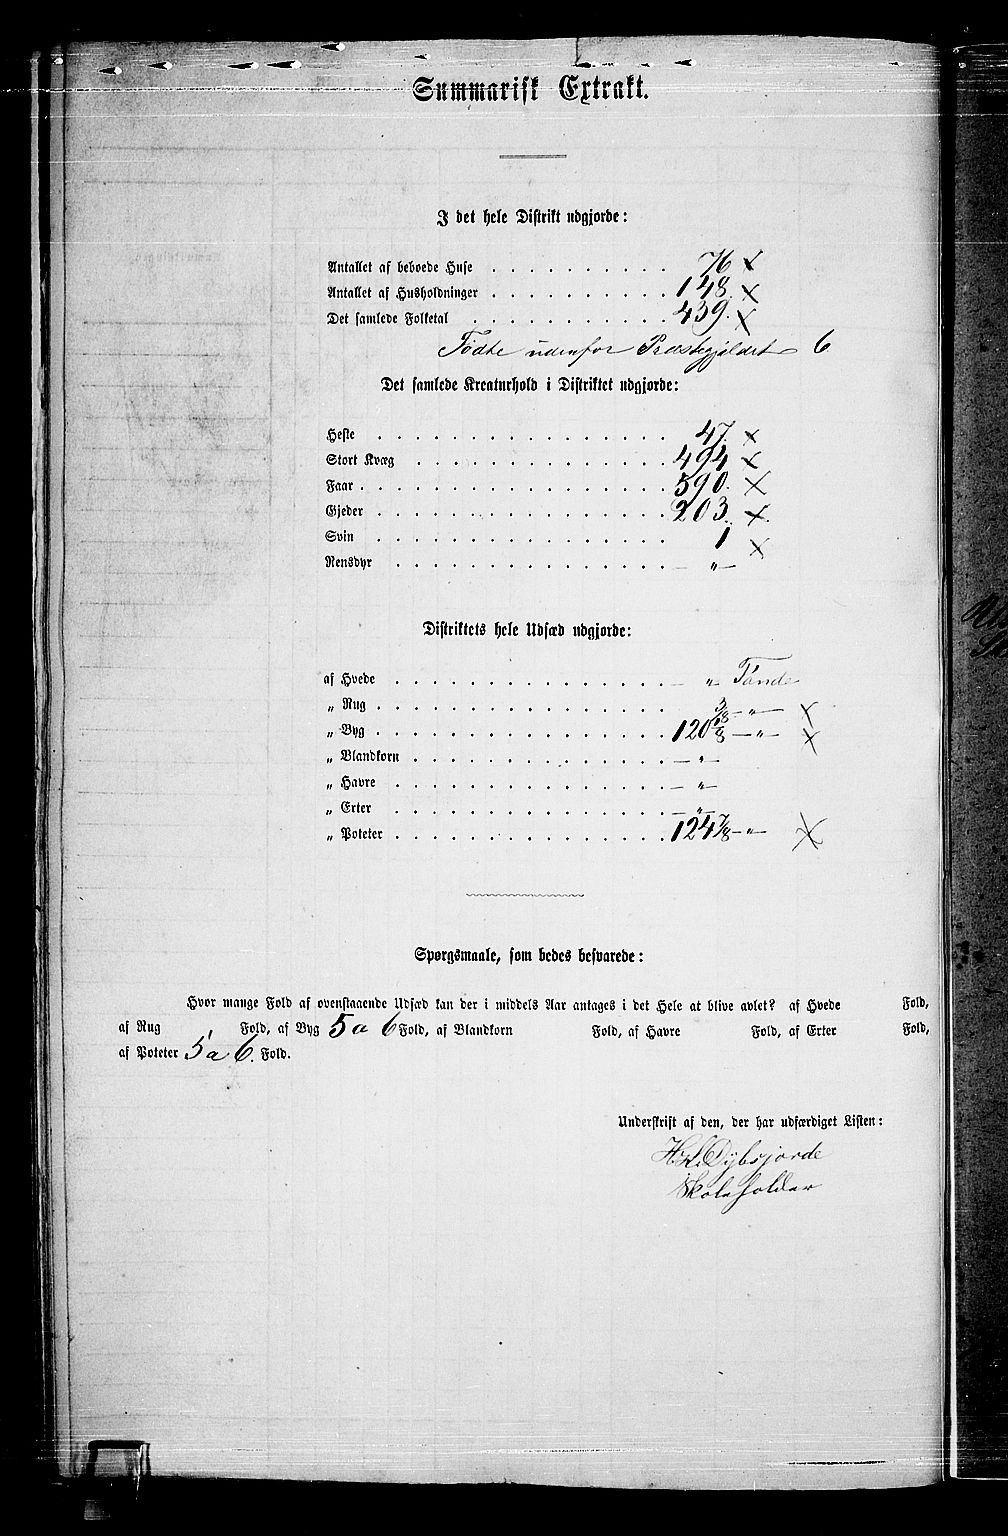 Summarisk Extrakt.
I det hele Distrikt udgjorde:
Antallet af beboede Huse . . . . . . . . . . 76 ×
Antallet af Husholdninger . . . . . . . . . . 148. ×
Det samlede Folketal . . . . . . . . . . . 439. ×
Fødte udenfor Præstegjeldet 6
Det samlede Kreaturhold i Distriktet udgjorde:
Heste . . . . . . . . . . . . . . . . 47. ×
Stort Kvæg . . . . . . . . . . . . . . 494 ×
Faar . . . . . . . . . . . . . . . . . 590. ×
Gjeder . . . . . . . . . . . . . . . . 203. ×
Svin . . . . . . . . . . . . . . . . 1 ×
Rensdyr . . . . . . . . . . . . . . . — „ —
Distriktets hele Udsæd udgjorde:
af Hvede . . . . . . . . . . . . . . . — „ Tønde
„ Rug . . . . . . . . . . . . . . . . 3/8 — „ — ×
„ Byg . . . . . . . . . . . . . . . . 120 /8 — „ — ×
„ Blandkorn . . . . . . . . . . . . . . — „ —
„ Havre . . . . . . . . . . . . . . . — „ —
„ Erter . . . . . . . . . . . . . . . — „ —
„ Poteter . . . . . . . . . . . . . . . 124 7/8 — „ — ×
Spørgsmaale, som bedes besvarede:
Hvor mange Fold af ovenstaaende Udsæd kan der i middels Aar antages i det Hele at blive avlet? af Hvede Fold,
af Rug Fold, af Byg 5 a 6 Fold, af Blandkorn Fold, af Havre Fold, af Erter Fold,
af Poteter 5 a 6. Fold.
Underskrift af den, der har udfærdiget Listen:
Dybsjorde
Skoleholder